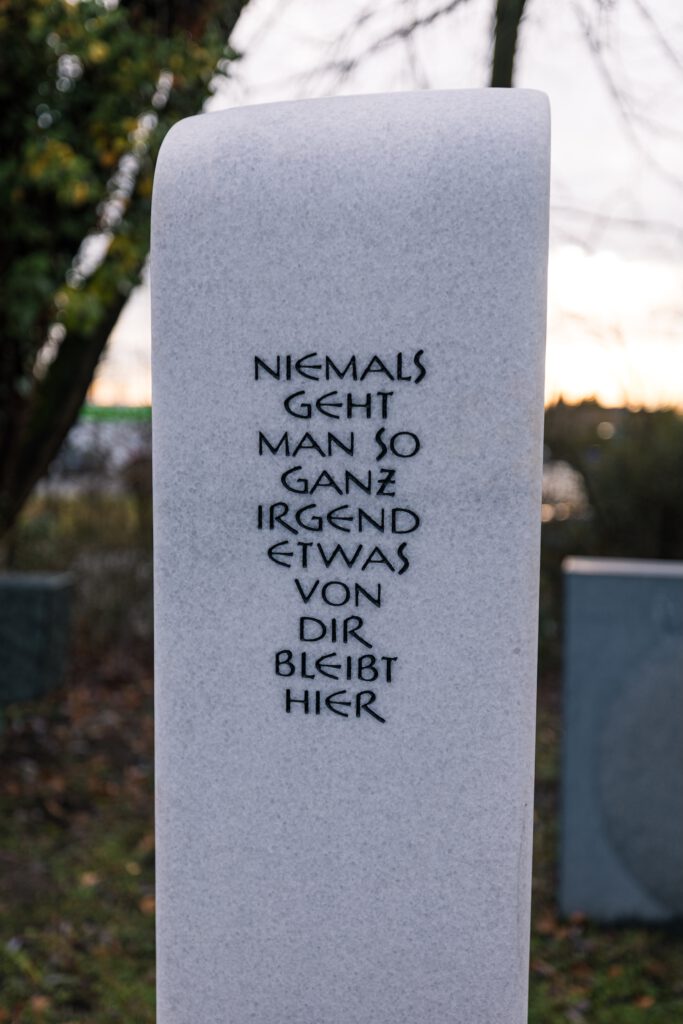 NIEMALS
GEHT
MAN SO
GANZ
IRGEND
ETWAS
VON
DIR
BLEIBT
HIER